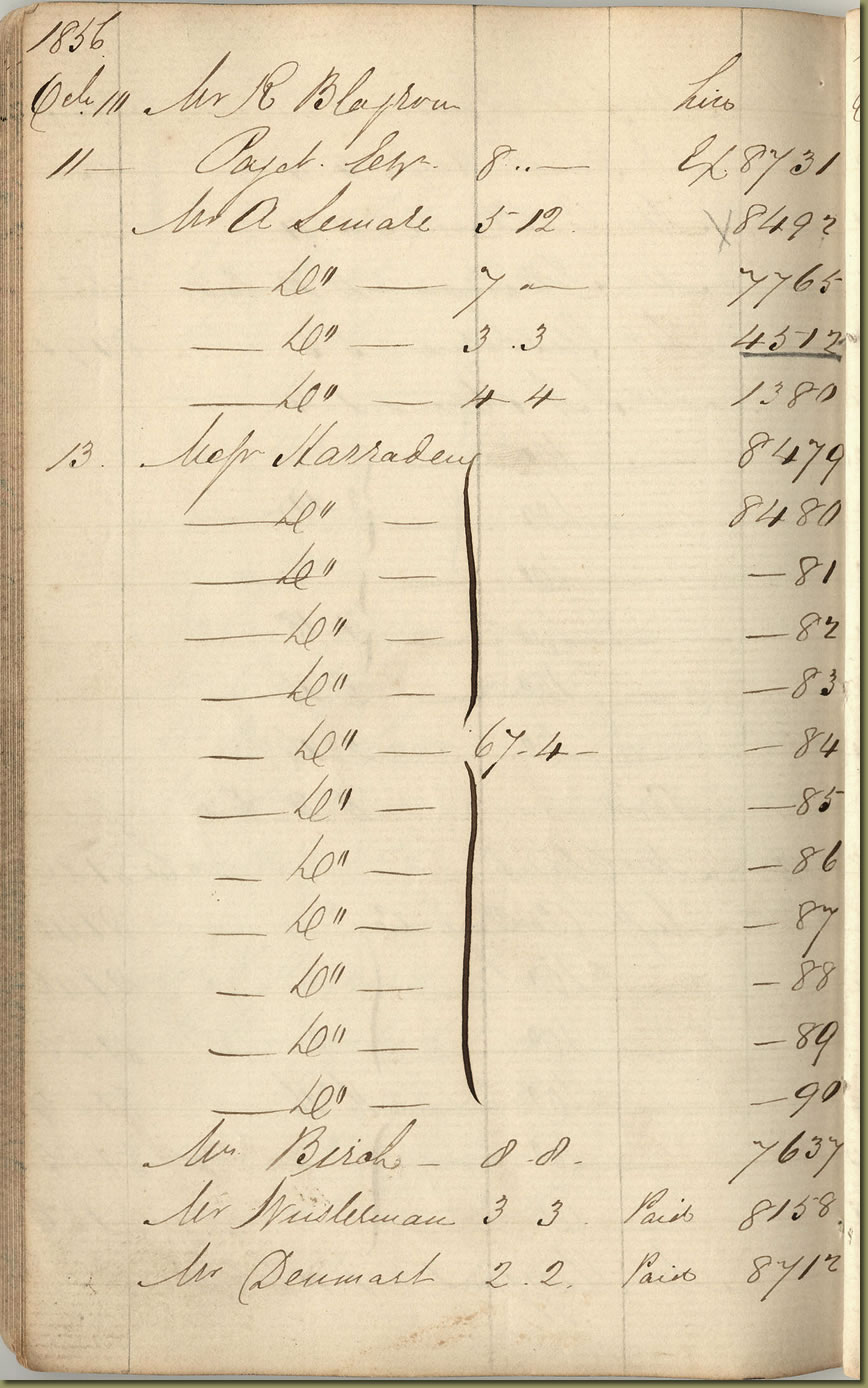 1856
Octr. 10 Mr R Blagrove hire
11 — Payet. Esqr. 8 .. — Ex 8731
Mr A Lemare 5 12. X 8492
— Do" — 7 — 7765
— Do" — 3 . 3 4512
— Do" — 4 4 1380
13. Messr Harraden 8479
— Do" — 8480
— Do" — — 81
— Do" — — 82
— Do" — — 83
— Do" — 67 - 4 - — 84
— Do" — — 85
— Do" — — 86
— Do" — — 87
— Do" — — 88
— Do" — — 89
— Do" — — 90
Mr Birch — 8 . 8 . 7637
Mr Wusterman 3 3 . Paid 8158.
Mr Denmark 2 . 2 . Paid 8712